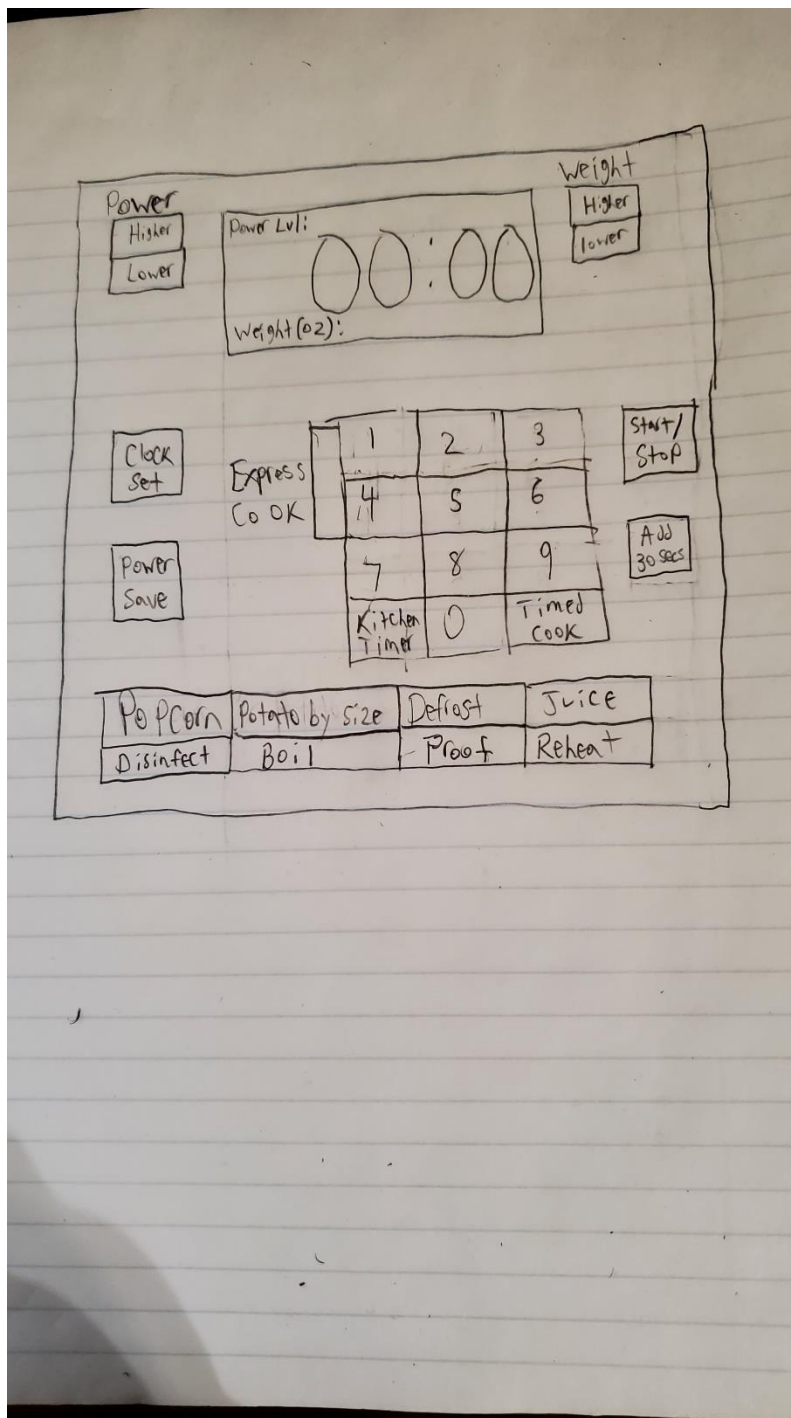 Power
Higher
Lower
Power Lvl:
00:00
Weight(oz):
Weight
Higher
lower
Clock
Set
Power
Save
Express
CoOK
1 2 3
4 5 6
7 8 9
Kitchen
Timer
0
Timed
COOK
Start/
Stop
Add
30 secs
PoPCorn Potato by size Defrost Juice
Disinfect Boil Proof Reheat